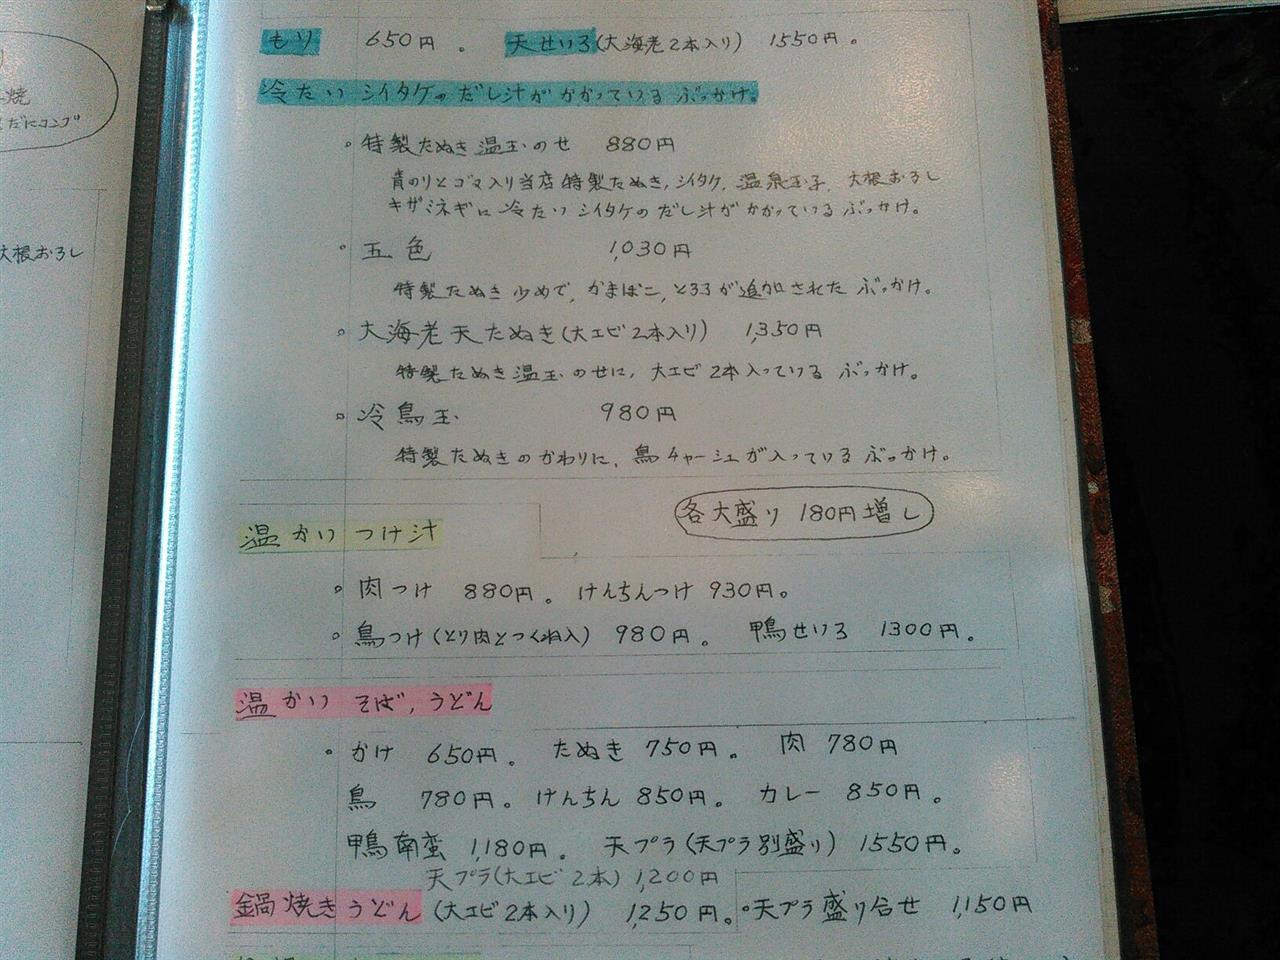 焼
だにコンブ
大根おろし
もり 650円。 天せいろ(大海老2本入り) 1550円。
冷たい シイタケのだし汁がかかっている ぶっかけ。
。特製たぬき温玉のせ 880円
青のりとゴマ入り当店特製たぬき, シイタケ, 温泉玉子, 大根おろし
キザミネギに冷たい シイタケの だし汁がかかっている ぶっかけ。
。五色 1,030円
特製たぬき少めで, かまぼこ, とろろが追加された ぶっかけ。
。大海老天たぬき(大エビ2本入り) 1,350円
特製たぬき温玉のせに, 大エビ2本入っている ぶっかけ。
。冷鳥玉 980円
特製たぬきのかわりに, 鳥チャーシュが入っている ぶっかけ。
各大盛り 180円増し
温かい つけ汁
。肉つけ 880円。 けんちんつけ 930円。
。鳥つけ(とり肉とつくね入) 980円。 鴨せいろ 1300円。
温かい そば, うどん
。かけ 650円。 たぬき 750円。 肉 780円
鳥 780円。 けんちん 850円。 カレー 850円。
鴨南蛮 1,180円。 天プラ(天プラ別盛り) 1550円。
天プラ(大エビ2本) 1,200円
鍋焼きうどん(大エビ2本入り) 1,250円。 。天プラ盛り合せ 1,150円